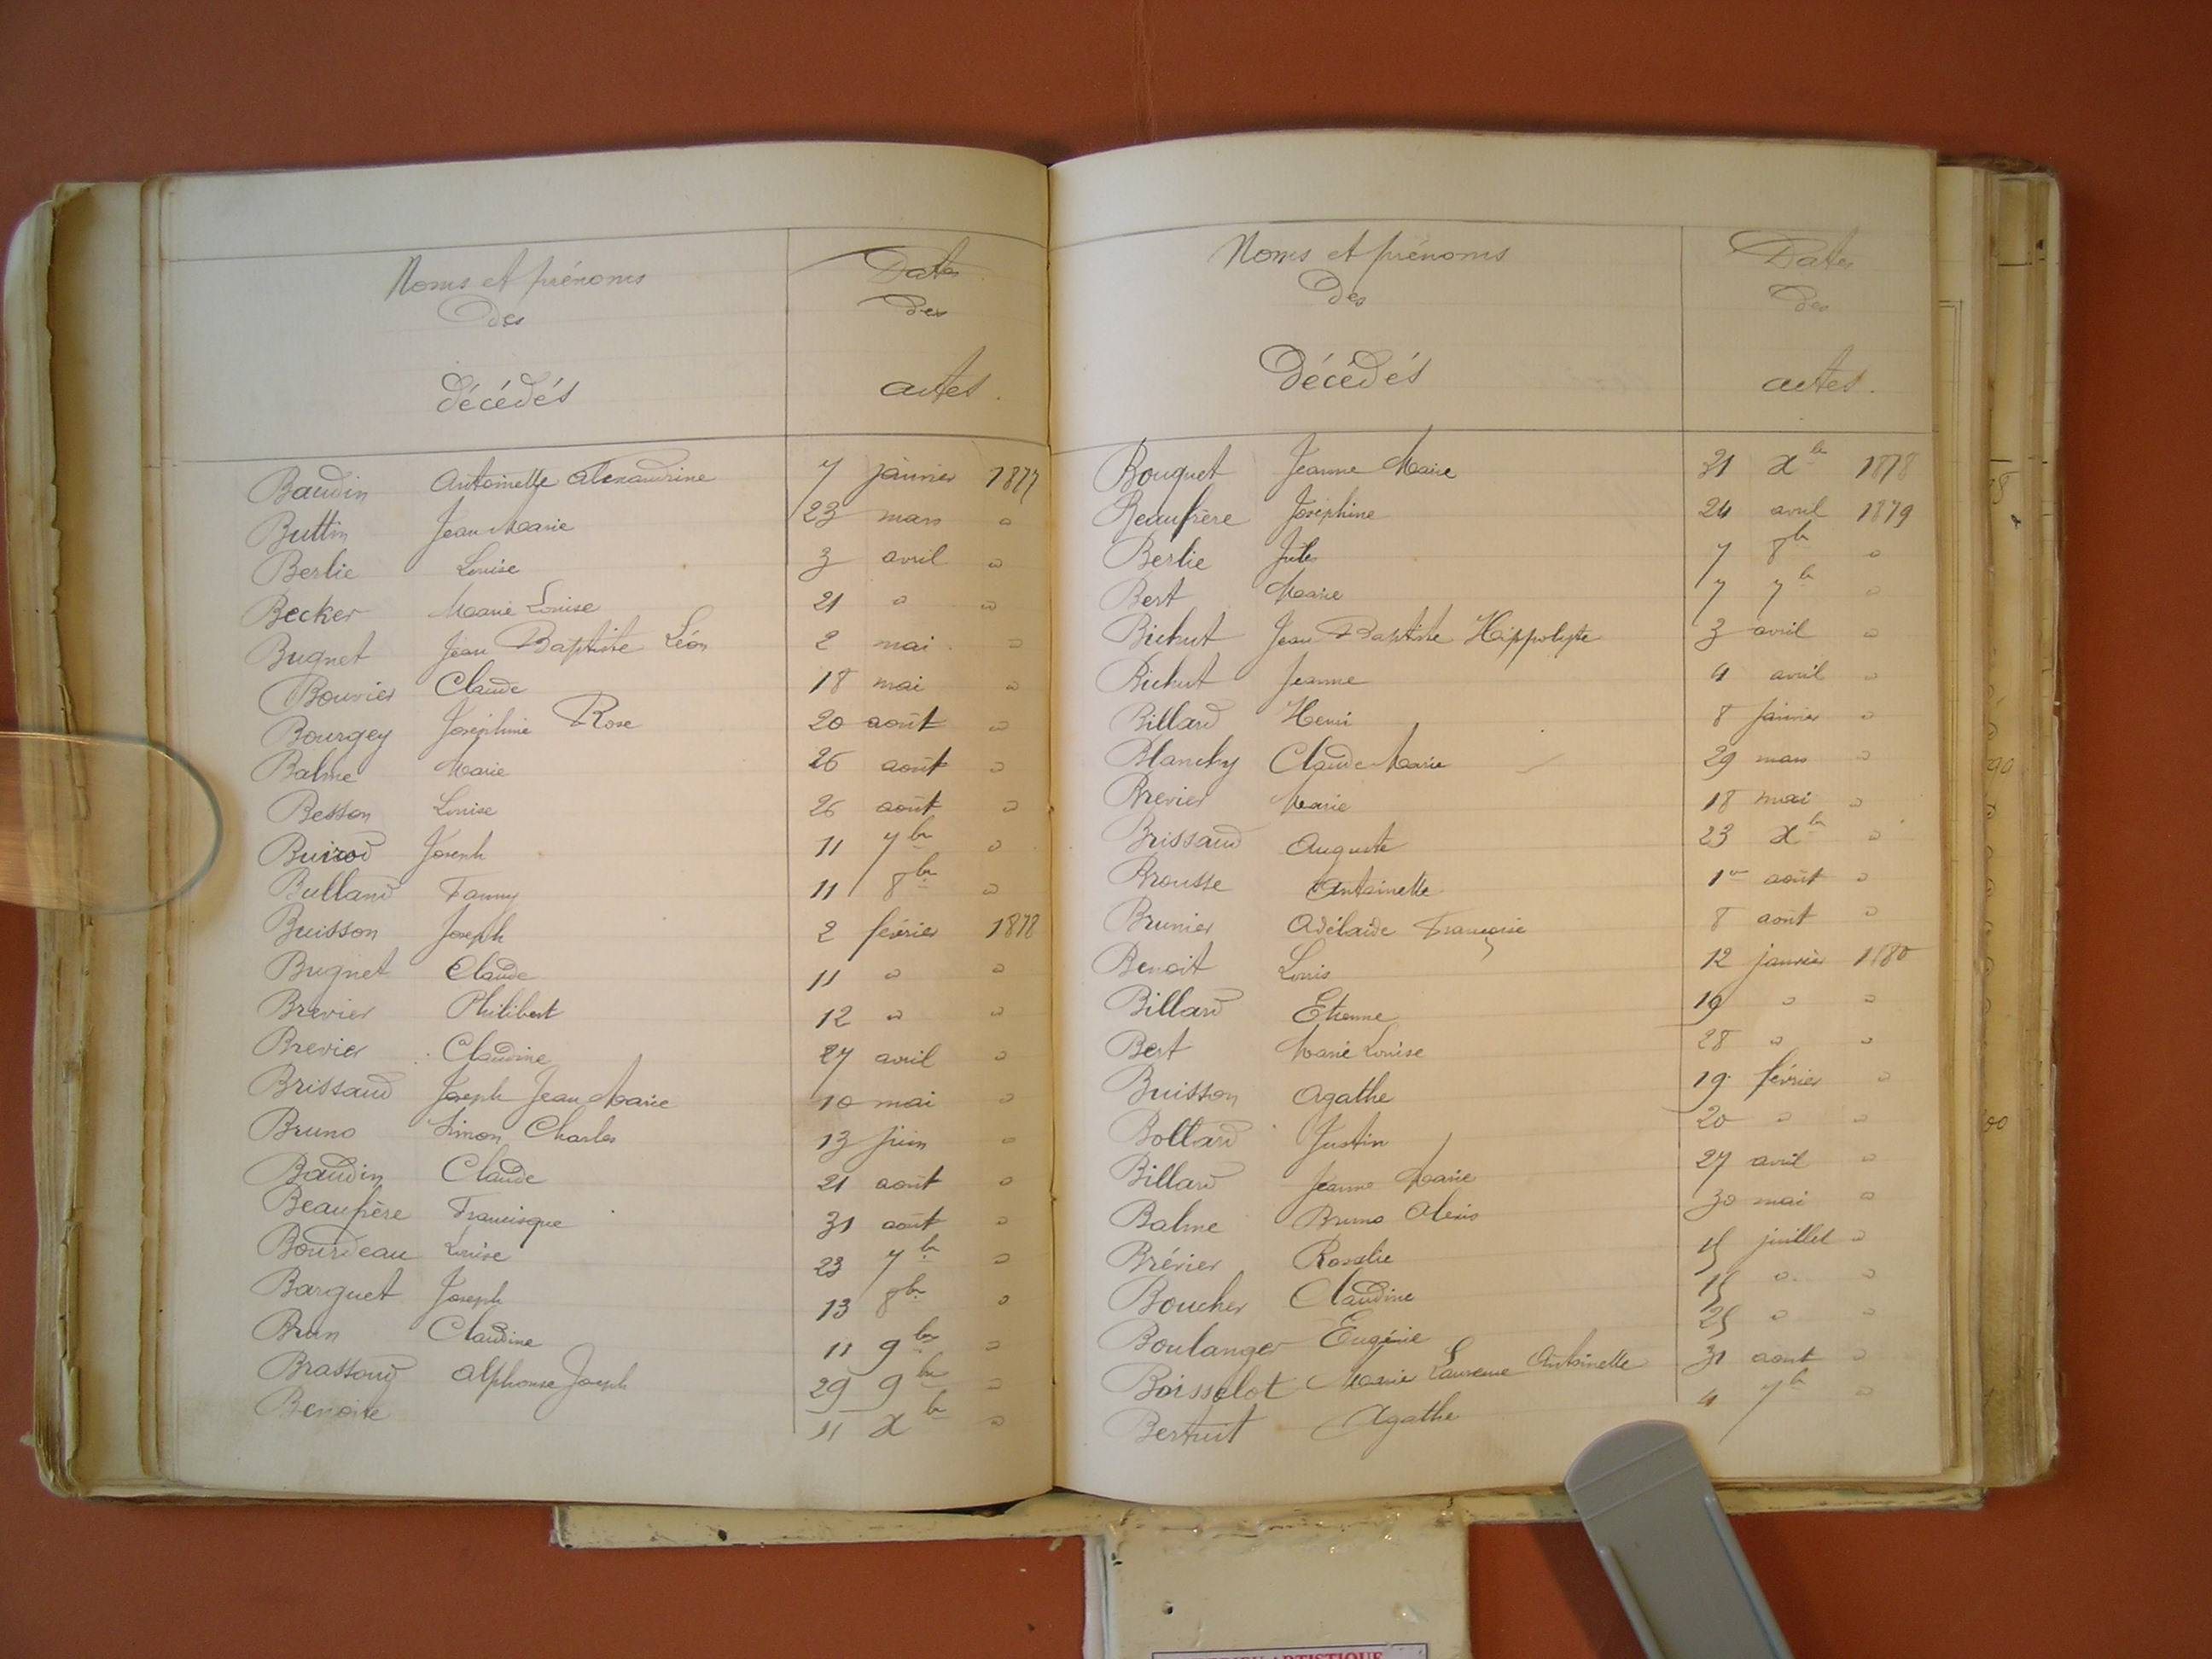 Noms et prénoms
des
décédés
Dates
des
actes.
Baudin Antoinette Alexandrine 7 janvier 1877
Buttin Jean Marie 23 mars "
Berlie Louise 3 avril "
Becker Marie Louise 21 " "
Bugnet Jean Baptiste Léon 2 mai "
Bouvier Claude 18 mai "
Bourgey Joséphine Rose 20 août "
Balme Marie 26 août "
Besson Louise 26 août "
Buirod Joseph 11 7bre "
Bulland Fanny 11 8bre "
Buisson Joseph 2 février 1878
Bugnet Claude 11 " "
Brevier Philibert 12 " "
Brevier Claudine 27 avril "
Brissaud Joseph Jean Marie 10 mai "
Bruno Simon Charles 13 juin "
Baudin Claude 21 août "
Beaufrère Francisque 31 août "
Bourdeau Louise 23 7bre "
Barquet Joseph 13 8bre "
Brun Claudine 11 9bre "
Brassoud Alphonse Joseph 29 9bre "
Benoite 11 Xbre "
Noms et prénoms
des
décédés
Dates
des
actes.
Bouquet Jeanne Marie 21 Xbre 1878
Beaufrère Joséphine 24 avril 1879
Berlie Jules 7 8bre "
Bert Marie 7 7bre "
Bichut Jean Baptiste Hippolyte 3 avril "
Bichut Jeanne 4 avril "
Billard Henri 8 janvier "
Blanchy Claude Marie 29 mars "
Brevier Marie 18 mai "
Brissaud Auguste 23 Xbre "
Brousse Antoinette 1er août "
Brunier Adélaide Françoise 8 août "
Benoit Louis 12 janvier 1880
Billard Etienne 19 " "
Bert Marie Louise 28 " "
Buisson Agathe 19 février "
Bollard Justin 20 " "
Billard Jeanne Marie 27 avril "
Balme Bruno Alexis 30 mai "
Brévier Rosalie 15 juillet "
Boucher Claudine 15 " "
Boulanger Eugénie 25 " "
Boisselot Marie Laurence Antoinette 31 août "
Bertuit Agathe 4 7bre "